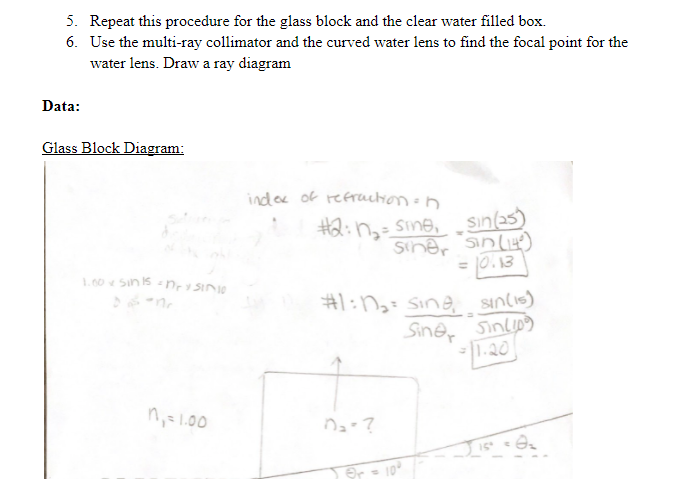 5. Repeat this procedure for the glass block and the clear water filled box.
6. Use the multi-ray collimator and the curved water lens to find the focal point for the
water lens. Draw a ray diagram
Data:
Glass Block Diagram:
index of refraction = n
#2: n₂ = sinθ, / sinθr = sin(25°) / sin(14°)
= 0.13
1.00 × sin15 = nr × sin10
= nr
#1: n₂ = sinθ, / sinθr = sin(15) / sin(10°)
= 1.20
n₁ = 1.00
n₂ = ?
15° = θ₂
θr = 10°